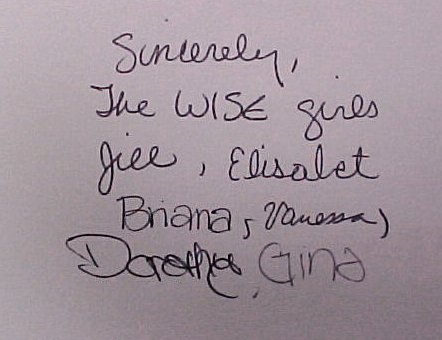 Sincerely,
The WISE girls
Jill, Elisabet
Briana, Vanessa,
Dorothea, Gina